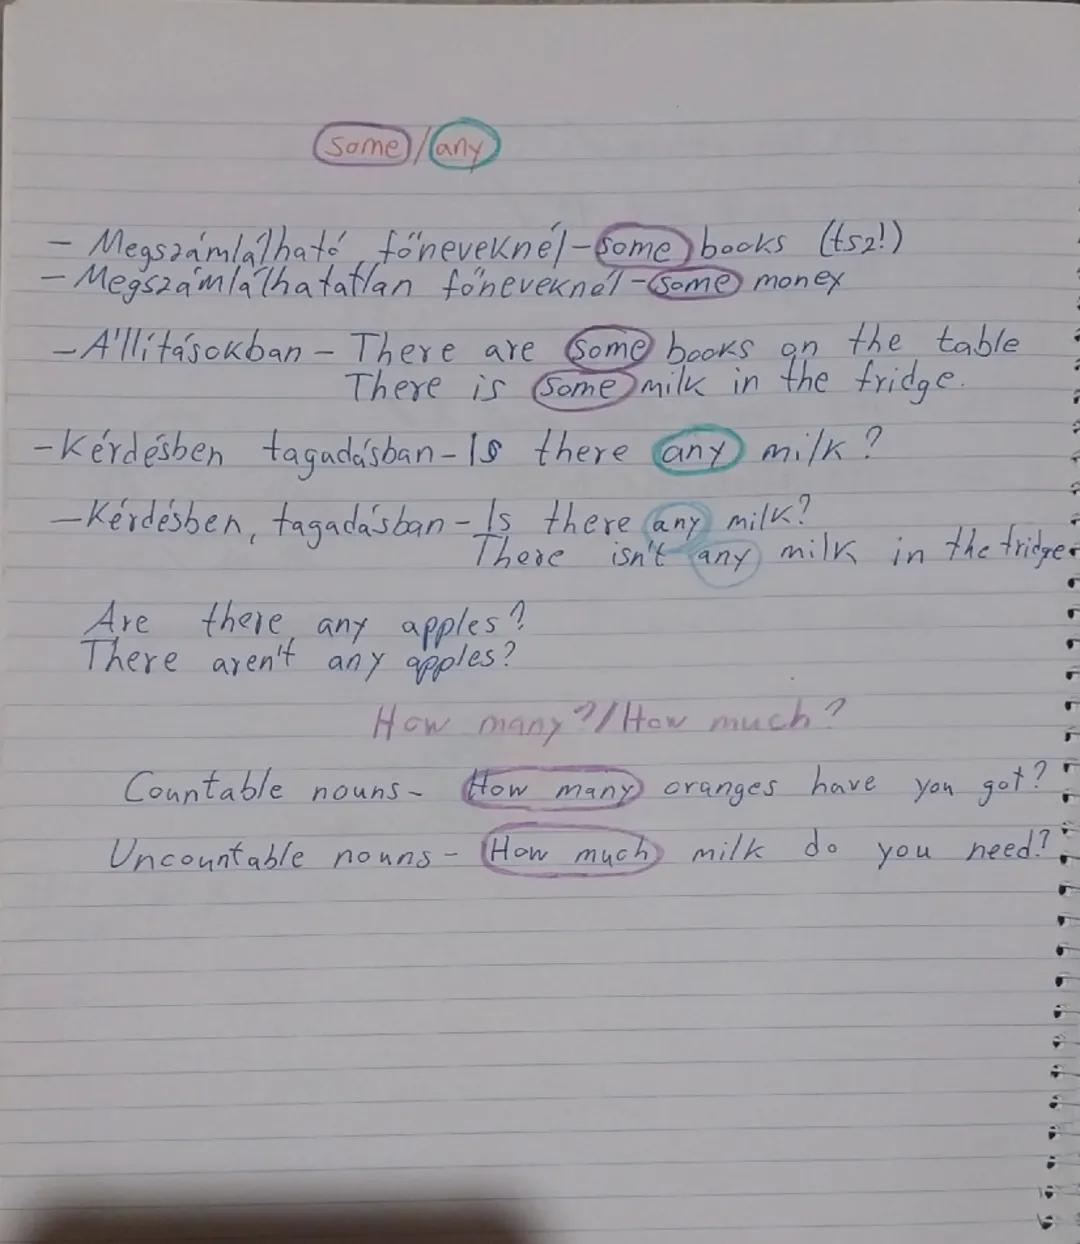 some/any
- Megszámlálható főneveknél - some books (tsz!)
- Megszámlálhatatlan főneveknél - some money
- Állításokban - There are some books on the table
There is some milk in the fridge.
- Kérdésben tagadásban - Is there any milk?
- Kérdésben, tagadásban - Is there any milk?
There isn't any milk in the fridge.
Are there any apples?
There aren't any apples?
How many?/How much?
Countable nouns - How many oranges have you got?
Uncountable nouns - How much milk do you need?